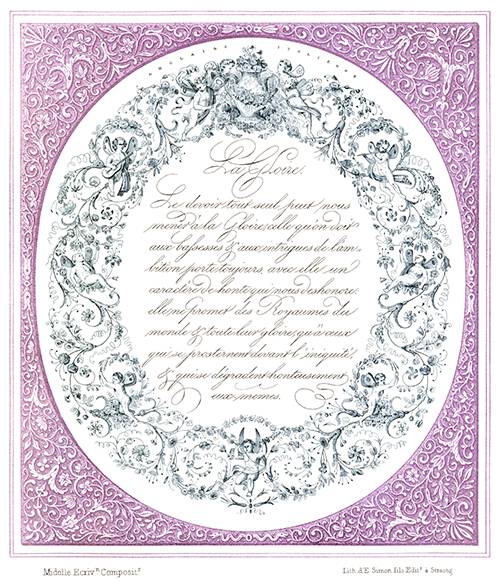 La Gloire.
Le devoir tout seul peut nous
mener à la Gloire; celle qu'on doit
aux bassesses & aux intrigues de l'am-
bition porte toujours, avec elle un
caractère de honte qui nous deshonore:
elle ne promet des Royaumes du
monde & toute leur gloire, qu'à ceux
qui se prosternent devant l'iniquité
& qui se dégradent honteusement
eux-memes.
Midolle Ecrivn. Compositr.
Lith. d'E. Simon fils Editr. à Strasbg.